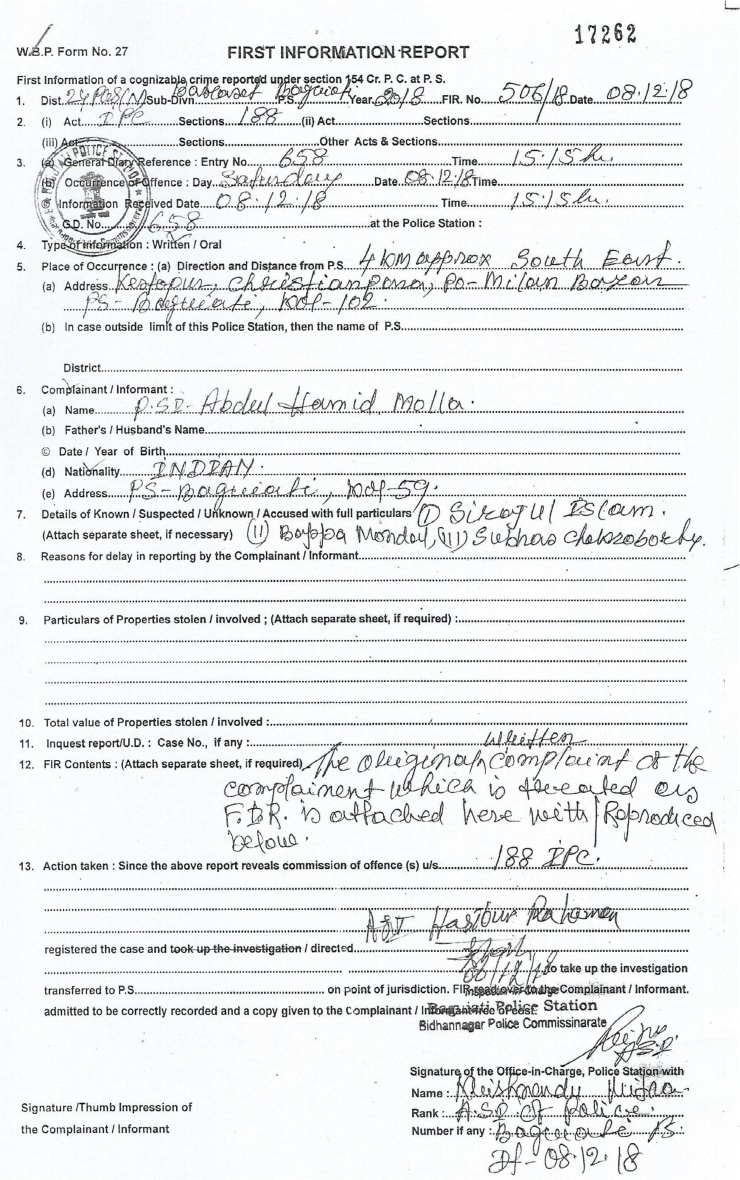 17262
W.B.P. Form No. 27
FIRST INFORMATION REPORT
First Information of a cognizable crime reported under section 154 Cr. P. C. at P. S.
1. Dist. 24 PGS(N) Sub-Divn. Barasat P.S. Baguiati Year 2018 FIR. No. 506/18 Date 08.12.18
2. (i) Act IPC Sections 188 (ii) Act Sections
(iii) Act Sections Other Acts & Sections
3. (a) General Diary Reference : Entry No. 658 Time 15:15 hr.
(b) Occurrence of Offence : Day Saturday Date 08.12.18 Time
© Information Received Date 08.12.18 Time 15:15 hr.
G.D. No. 658 at the Police Station :
4. Type of Information : Written / Oral
5. Place of Occurrence : (a) Direction and Distance from P.S. 4 km approx South East.
(a) Address Kestopur, Christianpara, Po- Milan Bazar
PS- Baguiati, Kol-102.
(b) In case outside limit of this Police Station, then the name of P.S.
District
6. Complainant / Informant :
(a) Name P.SI- Abdul Hamid Molla.
(b) Father's / Husband's Name
© Date / Year of Birth
(d) Nationality INDIAN.
(e) Address PS- Baguiati, Kol-59.
7. Details of Known / Suspected / Unknown / Accused with full particulars (I) Sirajul Islam.
(Attach separate sheet, if necessary) (II) Bappa Monday, (III) Subhas Chakraborty.
8. Reasons for delay in reporting by the Complainant / Informant
9. Particulars of Properties stolen / involved ; (Attach separate sheet, if required) :
10. Total value of Properties stolen / involved :
11. Inquest report/U.D. : Case No., if any :
written
12. FIR Contents : (Attach separate sheet, if required) The original complaint of the
complainent which is treated as
F.I.R. is attached here with / Reproduced
below.
13. Action taken : Since the above report reveals commission of offence (s) u/s. 188 IPC.
ASI Hasibur Rahaman
registered the case and took up the investigation / directed
08/12/18 to take up the investigation
transferred to P.S. on point of jurisdiction. FIR read over to the Complainant / Informant.
admitted to be correctly recorded and a copy given to the Complainant / Informant free of cost.
Inspector-in-Charge
Baguiati Police Station
Bidhannagar Police Commissinarate
Signature of the Office-in-Charge, Police Station with
Name :
Rank : A.S.I. of Police.
Number if any : Baguiati PS.
Dt- 08.12.18
Signature /Thumb Impression of
the Complainant / Informant